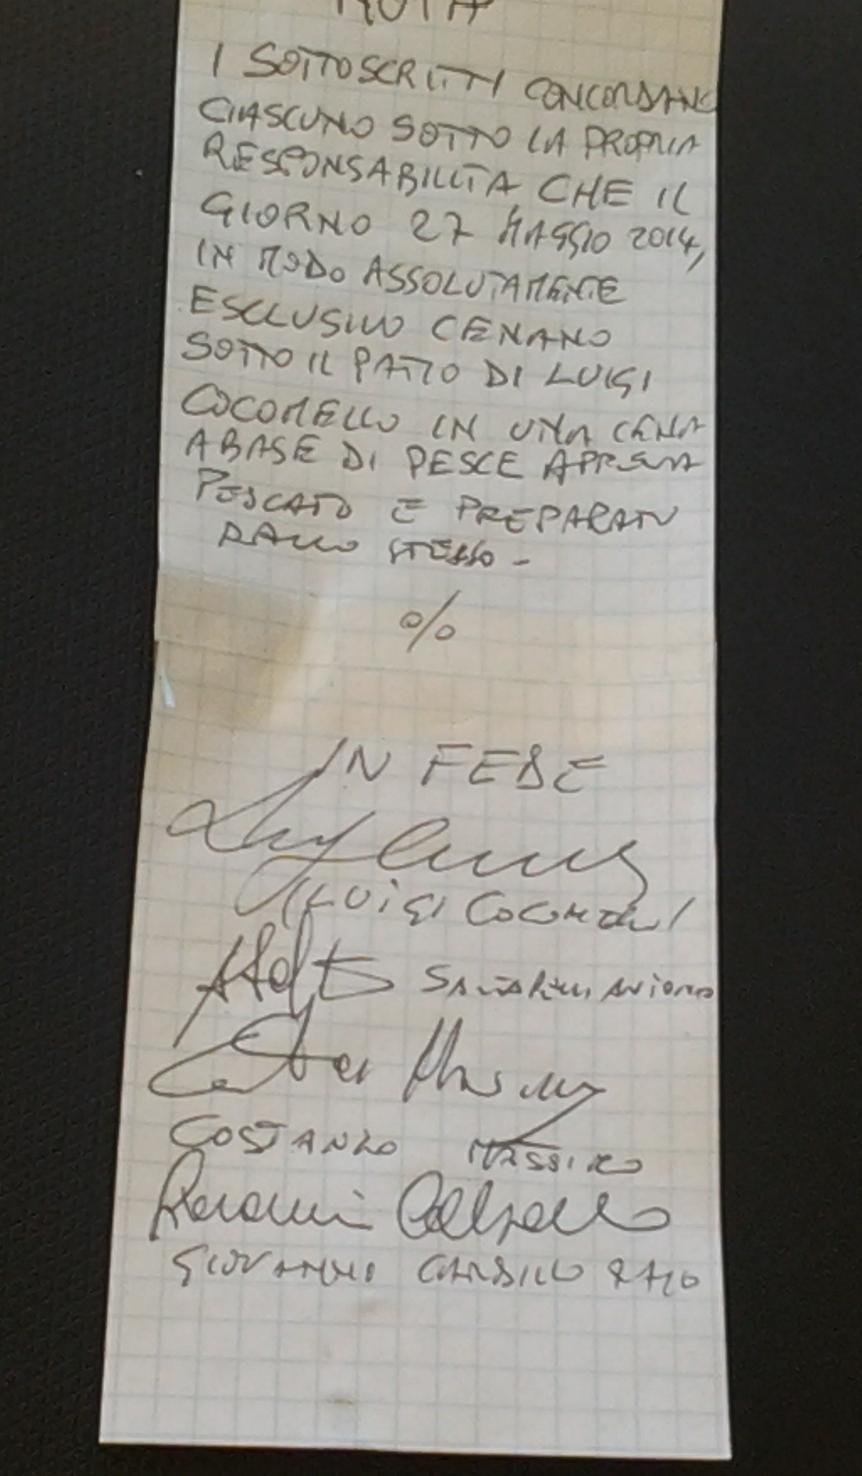 I SOTTOSCRITTI CONCORDANO
CIASCUNO SOTTO LA PROPRIA
RESPONSABILITÀ, CHE IL
GIORNO 27 MAGGIO 2014,
IN MODO ASSOLUTAMENTE
ESCLUSIVO CENANO
SOTTO IL PATIO DI LUIGI
COCOMELLO IN UNA CENA
A BASE DI PESCE APPENA
PESCATO E PREPARATO
DALLO STESSO -
%
IN FEDE
(LUIGI
COSTANZO MASSIMO
GIOVANNI